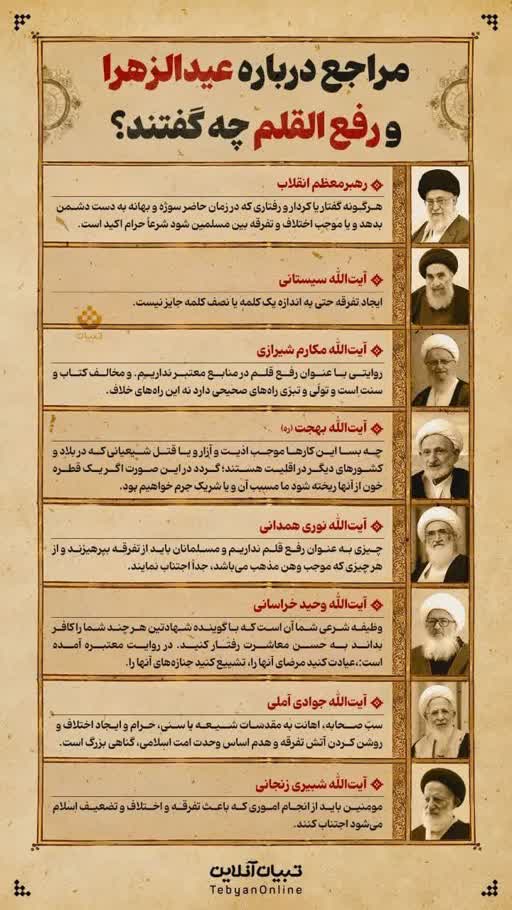 مراجع درباره عیدالزهرا
و رفع القلم چه گفتند؟
رهبرمعظم انقلاب
هرگونه گفتار یا کردار و رفتاری که در زمان حاضر سوژه و بهانه به دست دشمن
بدهد و یا موجب اختلاف و تفرقه بین مسلمین شود شرعاً حرام اکید است.
آیت‌الله سیستانی
ایجاد تفرقه حتی به اندازه یک کلمه یا نصف کلمه جایز نیست.
تبیان
آیت‌الله مکارم شیرازی
روایتی با عنوان رفع قلم در منابع معتبر نداریم. و مخالف کتاب و
سنت است و تولّی و تبرّی راه‌های صحیحی دارد نه این راه‌های خلاف.
آیت‌الله بهجت (ره)
چه بسا این کارها موجب اذیت و آزار و یا قتل شیعیانی که در بلاد و
کشورهای دیگر در اقلیت هستند؛ گردد در این صورت اگر یک قطره
خون از آنها ریخته شود ما مسبب آن و یا شریک جرم خواهیم بود.
آیت‌الله نوری همدانی
چیزی به عنوان رفع قلم نداریم و مسلمانان باید از تفرقه بپرهیزند و از
هر چیزی که موجب وهن مذهب می‌باشد، جداً اجتناب نمایند.
آیت‌الله وحید خراسانی
وظیفه شرعی شما آن است که با گوینده شهادتین هر چند شما را کافر
بداند به حسن معاشرت رفتار کنید. در روایت معتبره آمده
است:،عیادت کنید مرضای آنها را، تشییع کنید جنازه‌های آنها را.
آیت‌الله جوادی آملی
سبّ صحابه، اهانت به مقدسات شیعه یا سنی، حرام و ایجاد اختلاف و
روشن کردن آتش تفرقه و هدم اساس وحدت امت اسلامی، گناهی بزرگ است.
آیت‌الله شبیری زنجانی
مومنین باید از انجام اموری که باعث تفرقه و اختلاف و تضعیف اسلام
می‌شود اجتناب کنند.
تبیان آنلاین
TebyanOnline